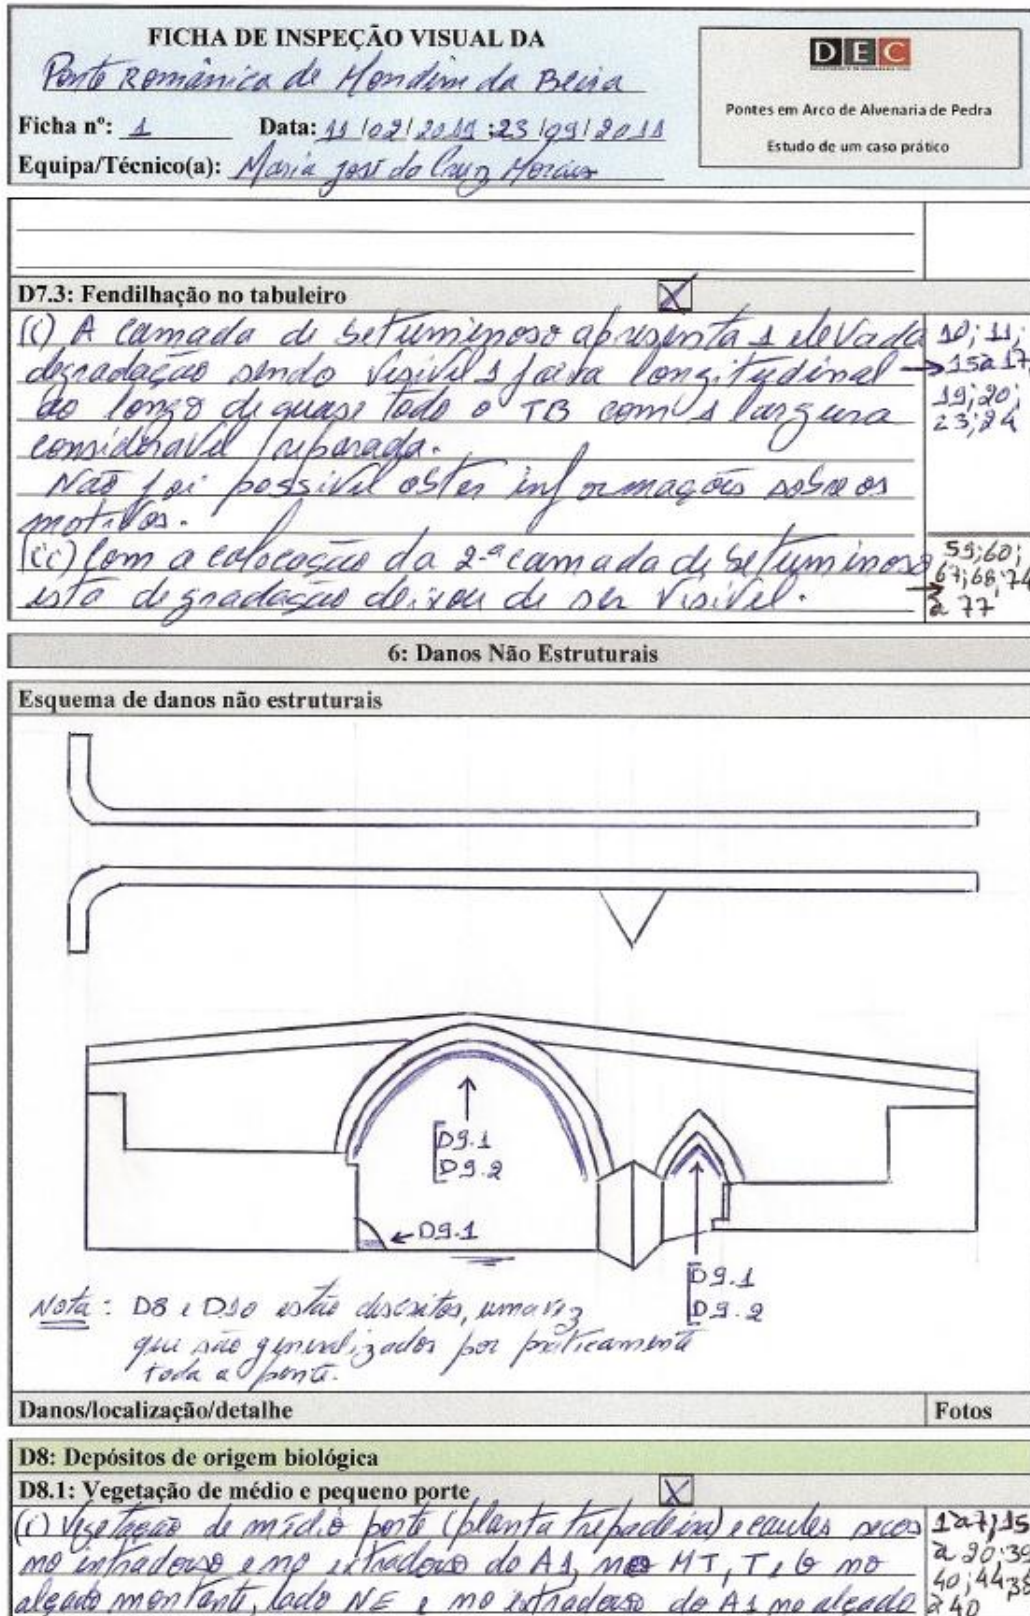 FICHA DE INSPEÇÃO VISUAL DA
Ponte Românica de Mondim da Beira
Ficha nº: 1 Data: 11/02/2011 ; 23/09/2011
Equipa/Técnico(a): Maria José da Cruz Morais
DEC
Pontes em Arco de Alvenaria de Pedra
Estudo de um caso prático
D7.3: Fendilhação no tabuleiro X
(i) A camada de betuminoso apresenta 1 elevada 10; 11;
degradação sendo visível 1 faixa longitudinal → 15 a 17;
ao longo de quase todo o TB com 1 largura 19; 20;
considerável reparada. 23; 24
Não foi possível obter informações sobre os
motivos.
(ii) Com a colocação da 2ª camada de betuminoso 59; 60;
esta degradação deixou de ser visível. → 67; 68; 74
a 77
6: Danos Não Estruturais
Esquema de danos não estruturais
D9.1
D9.2
D9.1
D9.1
D9.2
Nota: D8 e D10 estão descritos, uma vez
que são generalizados por praticamente
toda a ponte.
Danos/localização/detalhe Fotos
D8: Depósitos de origem biológica
D8.1: Vegetação de médio e pequeno porte X
(i) Vegetação de médio porte (planta trepadeira) e caules secos 1 a 7; 15
no intradorso e no extradorso do A1, nos MT, T, G no a 20; 39
alçado montante, lado NE e no extradorso do A1 no alçado 40; 44
a 40